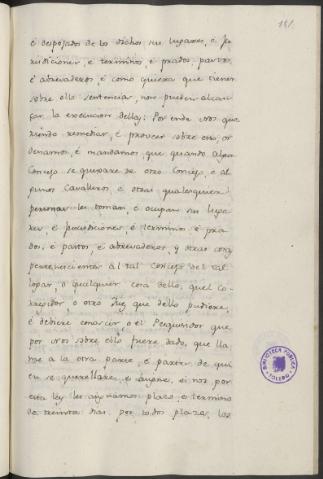 181.
é despojados de los dichos sus lugares, é Ju-
risdiciones, é terminos, é prados, pastos,
é abrevaderos, é como quiera que tienen
sobre ello sentencias, non pueden alcan-
zar la execucion dellas: Por ende Nos que
riendo remediar, é proveer sobre esto, or
denamos, é mandamos, que quando algun
Concejo se quexare de otro Concejo, é al
gunos Cavalleros é otras qualesquier
personas les toman, é ocupan sus luga
res, é jurisdiciones, é terminos é pra
dos, é pastos, é abrevaderos, y otras cosas
pertenecientes al tal Concejo del tal
logar, o qualquier cosa dello, quel Co-
rregidor, o otro Juez que dello pudiere,
é debiere conoscer, o el Pesquiridor que
por Nos sobre ello fuere dado, que lla
me a la otra parte, é partes de qui
en se querellare, é asigne, é nos por
esta ley les asignamos plazo, é termino
de treinta dias por todos plazos, los
BIBLIOTECA PUBLICA
TOLEDO